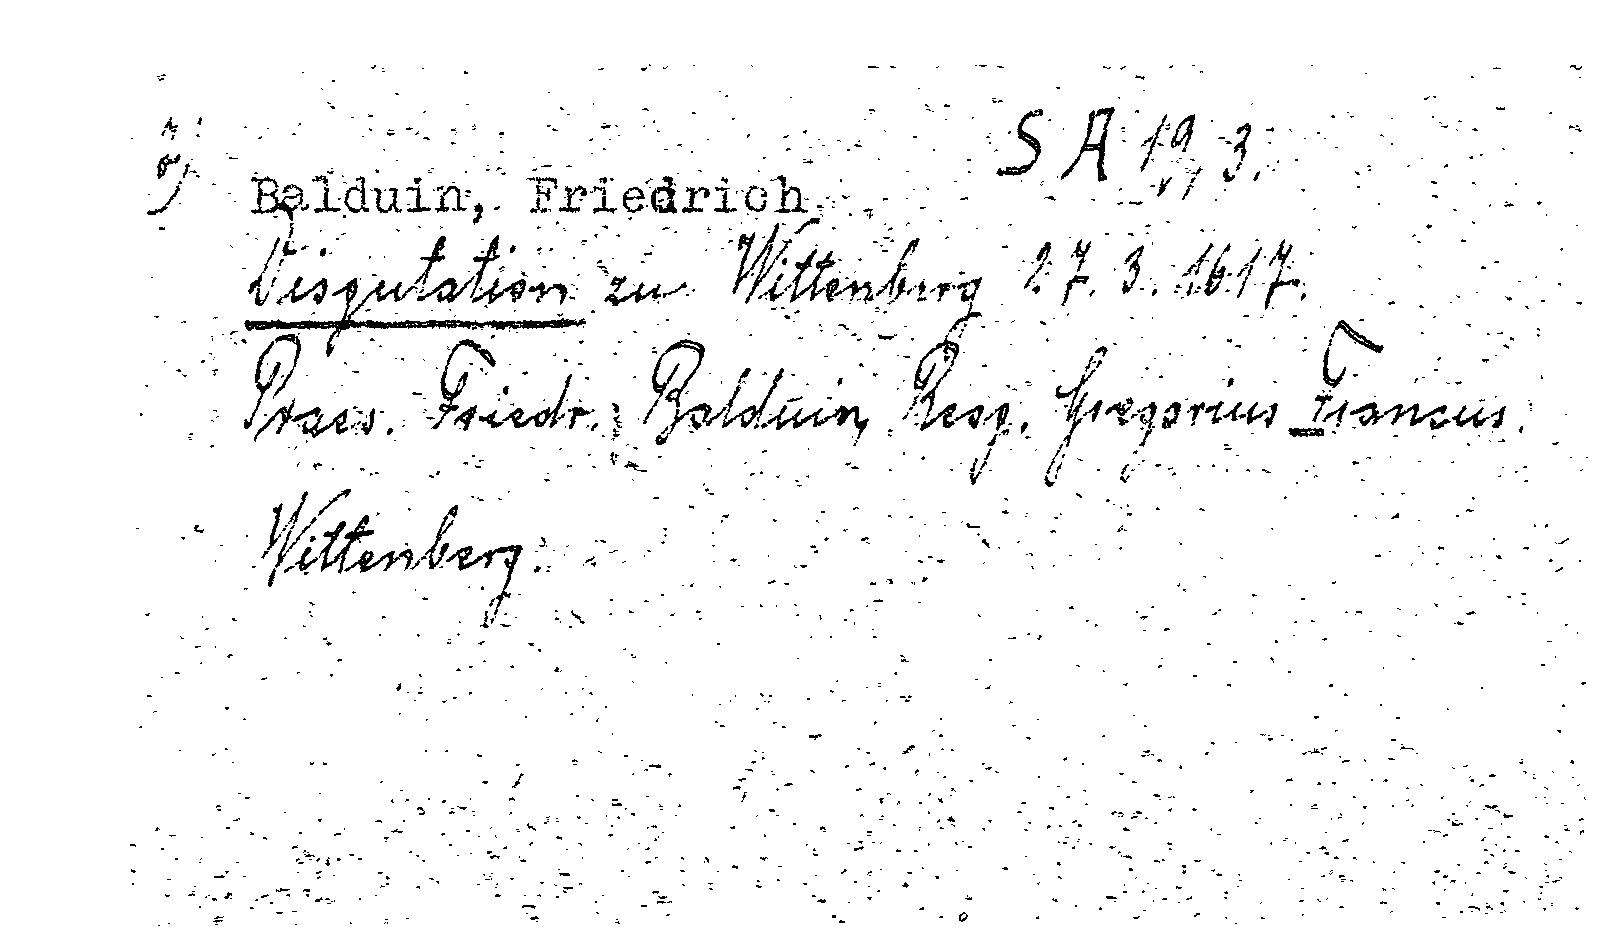 S A 19, 3.
Balduin, Friedrich
Disputation zu Wittenberg 27. 3. 1617.
Praes. Friedr. Balduin, Resp. Gregorius Francus.
Wittenberg.